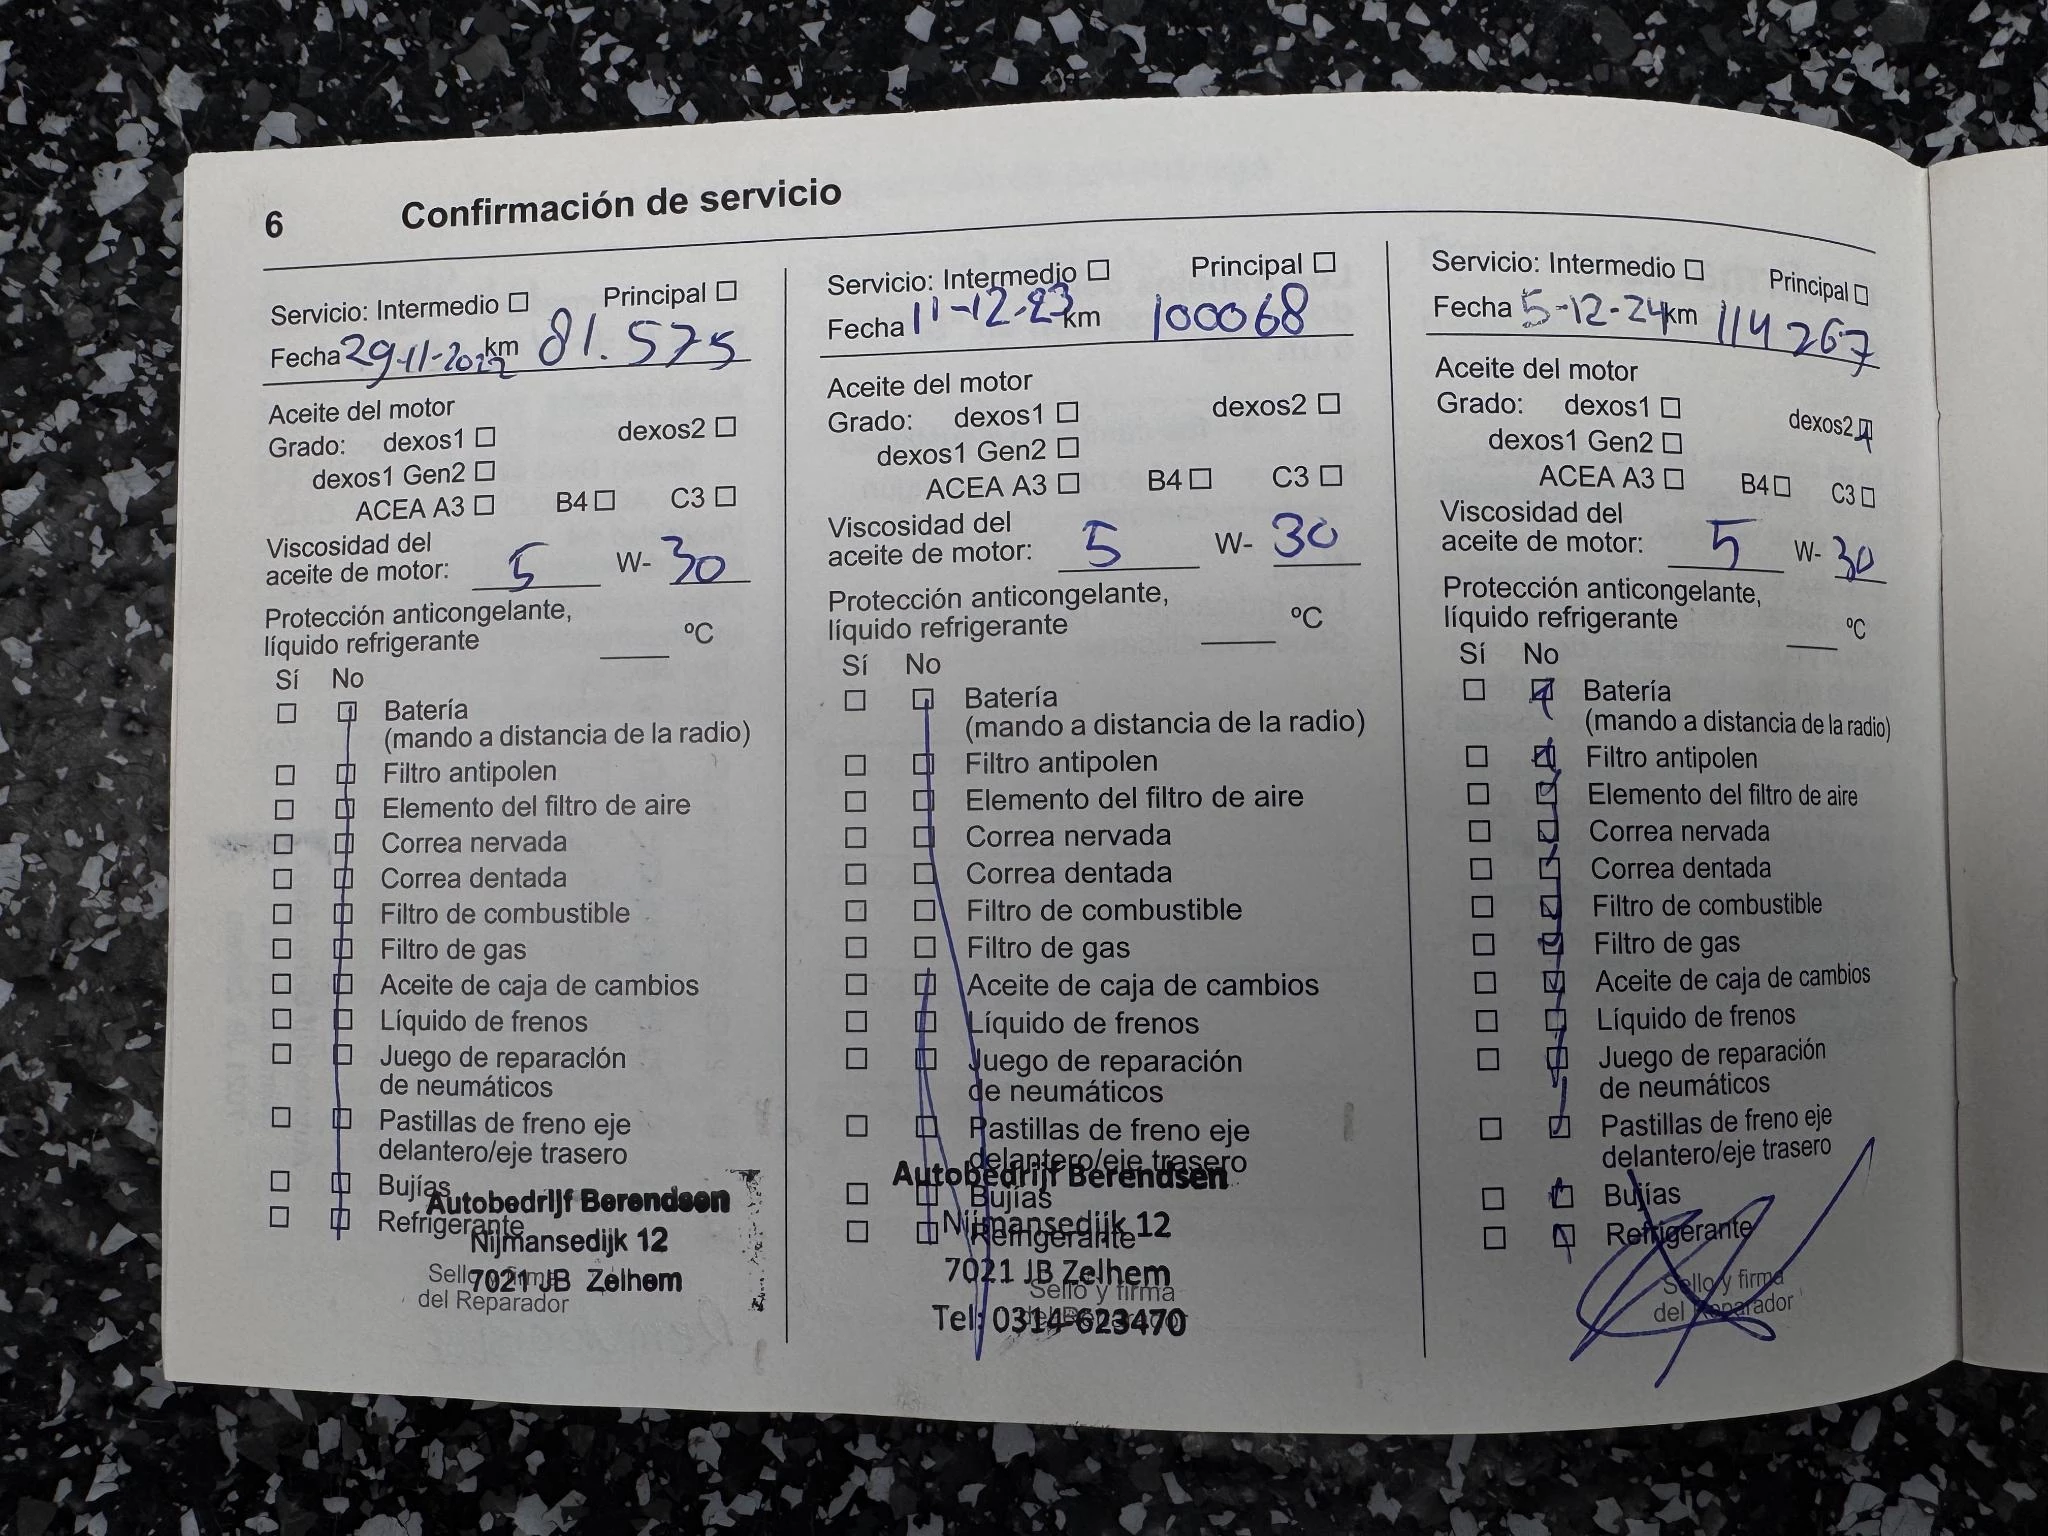 6 Confirmación de servicio
Servicio: Intermedio Principal
Fecha 29-11-2022 km 81.575
Aceite del motor
Grado: dexos1 dexos2
dexos1 Gen2
ACEA A3 B4 C3
Viscosidad del
aceite de motor: 5 W- 30
Protección anticongelante,
líquido refrigerante ºC
Sí No
Batería
(mando a distancia de la radio)
Filtro antipolen
Elemento del filtro de aire
Correa nervada
Correa dentada
Filtro de combustible
Filtro de gas
Aceite de caja de cambios
Líquido de frenos
Juego de reparación
de neumáticos
Pastillas de freno eje
delantero/eje trasero
Bujías
Autobedrijf Berendsen
Refrigerante
Nijmansedijk 12
Sello y firma
7021 JB Zelhem
del Reparador
Servicio: Intermedio Principal
Fecha 11-12-23 km 100068
Aceite del motor
Grado: dexos1 dexos2
dexos1 Gen2
ACEA A3 B4 C3
Viscosidad del
aceite de motor: 5 W- 30
Protección anticongelante,
líquido refrigerante ºC
Sí No
Batería
(mando a distancia de la radio)
Filtro antipolen
Elemento del filtro de aire
Correa nervada
Correa dentada
Filtro de combustible
Filtro de gas
Aceite de caja de cambios
Líquido de frenos
Juego de reparación
de neumáticos
Pastillas de freno eje
delantero/eje trasero
Autobedrijf Berendsen
Bujías
Nijmansedijk 12
Refrigerante
7021 JB Zelhem
Sello y firma
del Reparador
Tel: 0314-623470
Servicio: Intermedio Principal
Fecha 5-12-24 km 114267
Aceite del motor
Grado: dexos1 dexos2
dexos1 Gen2
ACEA A3 B4 C3
Viscosidad del
aceite de motor: 5 W- 30
Protección anticongelante,
líquido refrigerante ºC
Sí No
Batería
(mando a distancia de la radio)
Filtro antipolen
Elemento del filtro de aire
Correa nervada
Correa dentada
Filtro de combustible
Filtro de gas
Aceite de caja de cambios
Líquido de frenos
Juego de reparación
de neumáticos
Pastillas de freno eje
delantero/eje trasero
Bujías
Refrigerante
Sello y firma
del Reparador